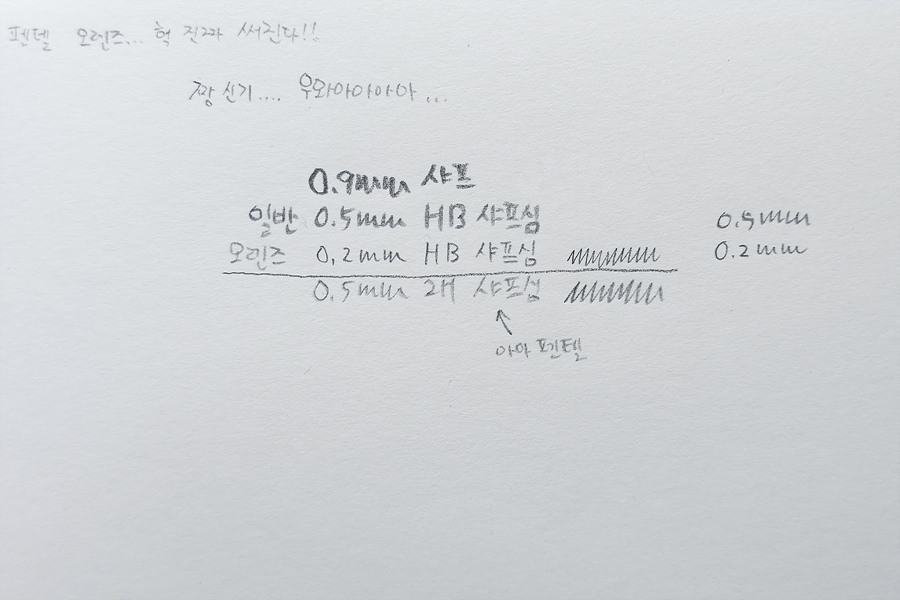 펜텔 오렌즈... 헉 진짜 써진다!!
짱 신기.... 우와아아아아아...
0.9mm 샤프
일반 0.5mm HB 샤프심 0.5mm
오렌즈 0.2mm HB 샤프심 0.2mm
0.5mm 2H 샤프심
아마 펜텔